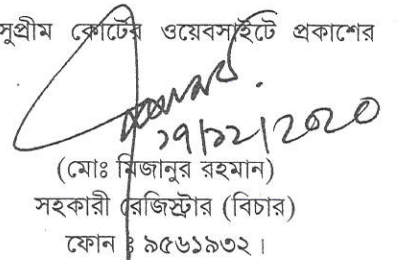 সুপ্রীম কোর্টের ওয়েবসাইটে প্রকাশের
১৭/১২/২০২০
(মোঃ মিজানুর রহমান)
সহকারী রেজিস্ট্রার (বিচার)
ফোন ঃ ৯৫৬১৯৩২।